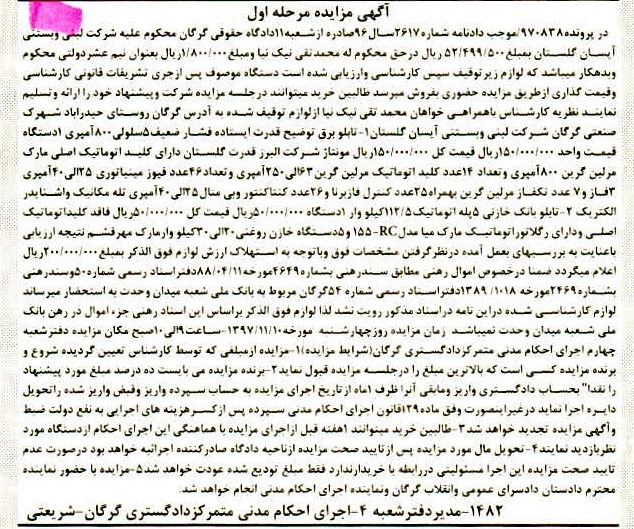 آگهی مزایده مرحله اول
در پرونده۹۷۰۸۳۸/موجب دادنامه شماره۲۶۱۷سال۹۶صادره ازشعبه۱۱دادگاه حقوقی گرگان محکوم علیه شرکت لبنی وبستنی
آیسان گلستان بمبلغ۵۲/۴۹۹/۵۰۰ ریال درحق محکوم له محمدتقی نیک نیا ومبلغ۱/۸۰۰/۰۰۰ریال بعنوان نیم عشردولتی محکوم
وبدهکار میباشد که لوازم زیر توقیف سپس کارشناسی وارزیابی شده است دستگاه موصوف پس ازجری تشریفات قانونی کارشناسی
وقیمت گذاری ازطریق مزایده حضوری بفروش میرسد طالبین خرید میتوانند درجلسه مزایده شرکت وپیشنهاد خود را ارائه وتسلیم
نمایند نظریه کارشناس باهمراهی خواهان محمد تقی نیک نیا ازلوازم توقیف شده به آدرس گرگان روستای حیدراباد شهرک
صنعتی گرگان شرکت لبنی وبستنی آیسان گلستان۱-تابلو برق توضیح قدرت ایستاده فشار ضعیف۵سلولی۸۰۰آمپری ۱دستگاه
قیمت واحد ۱۵۰/۰۰۰/۰۰۰ریال قیمت کل ۱۵۰/۰۰۰/۰۰۰ریال مونتاژ شرکت البرز قدرت گلستان دارای کلید اتوماتیک اصلی مارک
مرلین گرین ۸۰۰آمپری وتعداد ۱۴عدد کلید اتوماتیک مرلین گرین ۶۳الی۲۵۰آمپری وتعداد۴۶عدد فیوز مینیاتوری ۲۵الی۴۰آمپری
۳فاز و۷ عدد تکفاز مرلین گرین بهمراه۲۵عدد کنترل فازبرنا و۲۶عدد کنتاکتور وبی متال۲۵الی۴۰آمپری تله مکانیک واشنایدر
الکتریک ۲-تابلو بانک خازنی ۵پله اتوماتیک۱۱۲/۵کیلو وار ۱دستگاه ۵۰/۰۰۰/۰۰۰ریال قیمت کل ۵۰/۰۰۰/۰۰۰ریال فاقد کلیداتوماتیک
اصلی ودارای رگلاتوراتوماتیک مارک میا مدل۱۵۵-RC و۵دستگاه خازن روغنی۲۰الی۳۰کیلو وارمارک مهرقشم نتیجه ارزیابی
باعنایت به بررسیهای بعمل آمده درنظرگرفتن مشخصات فوق وباتوجه به استهلاک ارزش لوازم فوق الذکر بمبلغ۲۰۰/۰۰۰/۰۰۰ریال
اعلام میگردد ضمنا درخصوص اموال رهنی مطابق سندرهنی بشماره۴۶۴۹مورخه۸۸/۰۴/۱۱دفتراسناد رسمی شماره۵۰وسندرهنی
بشماره۲۴۶۹مورخه ۱۳۸۹/۱۰۱۸دفتراسناد رسمی شماره ۵۴گرگان مربوط به بانک ملی شعبه میدان وحدت به استحضار میرساند
لوازم کارشناسی شده دراین نامه دراسناد مذکور رویت نشد لذا لوازم فوق الذکر براساس این اسناد رهنی جزء اموال در رهن بانک
ملی شعبه میدان وحدت نمیباشد زمان مزایده روزچهارشنبه مورخه۱۳۹۷/۱۱/۱۰-ساعت۹الی۱۰صبح مکان مزایده دفترشعبه
چهارم اجرای احکام مدنی متمرکزدادگستری گرگان(شرایط مزایده)۱-مزایده ازمبلغی که توسط کارشناس تعیین گردیده شروع و
برنده مزایده کسی است که بالاترین مبلغ را درجلسه مزایده قبول نماید۲-برنده مزایده می بایست ده درصد مبلغ مورد پیشنهاد
را نقدا" بحساب دادگستری واریز ومابقی آنرا ظرف ۱ماه از تاریخ اجرای مزایده به حساب سپرده واریز وقبض واریز شده راتحویل
دایره اجرا نماید درغیراینصورت وفق ماده۱۲۹قانون اجرای احکام مدنی سپرده پس ازکسرهزینه های اجرایی به نفع دولت ضبط
وآگهی مزایده تجدید خواهد شد۳-طالبین خرید میتوانند ۱هفته قبل ازاجرای مزایده با هماهنگی این اجرای احکام ازدستگاه مورد
نظربازدید نمایند۴-تحویل مال مورد مزایده پس ازتایید صحت مزایده ازناحیه دادگاه صادرکننده اجرائیه خواهد بود درصورت عدم
تایید صحت مزایده این اجرا مسئولیتی دررابطه با خریدارندارد فقط مبلغ تودیع شده عودت خواهد شد۵-مزایده با حضور نماینده
محترم دادستان دادسرای عمومی وانقلاب گرگان ونماینده اجرای احکام مدنی انجام خواهد شد.
۱۴۸۲-مدیردفترشعبه ۴-اجرای احکام مدنی متمرکزدادگستری گرگان-شریعتی